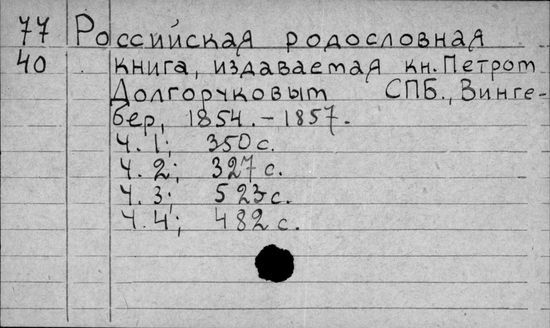 77 Российская родословная
40 книга, издаваемая кн. Петром
Долгоруковым СПБ., Винге-
бер, 1854. - 1857.
Ч. 1; 350 с.
Ч. 2; 327 с.
Ч. 3; 523 с.
Ч. 4; 482 с.